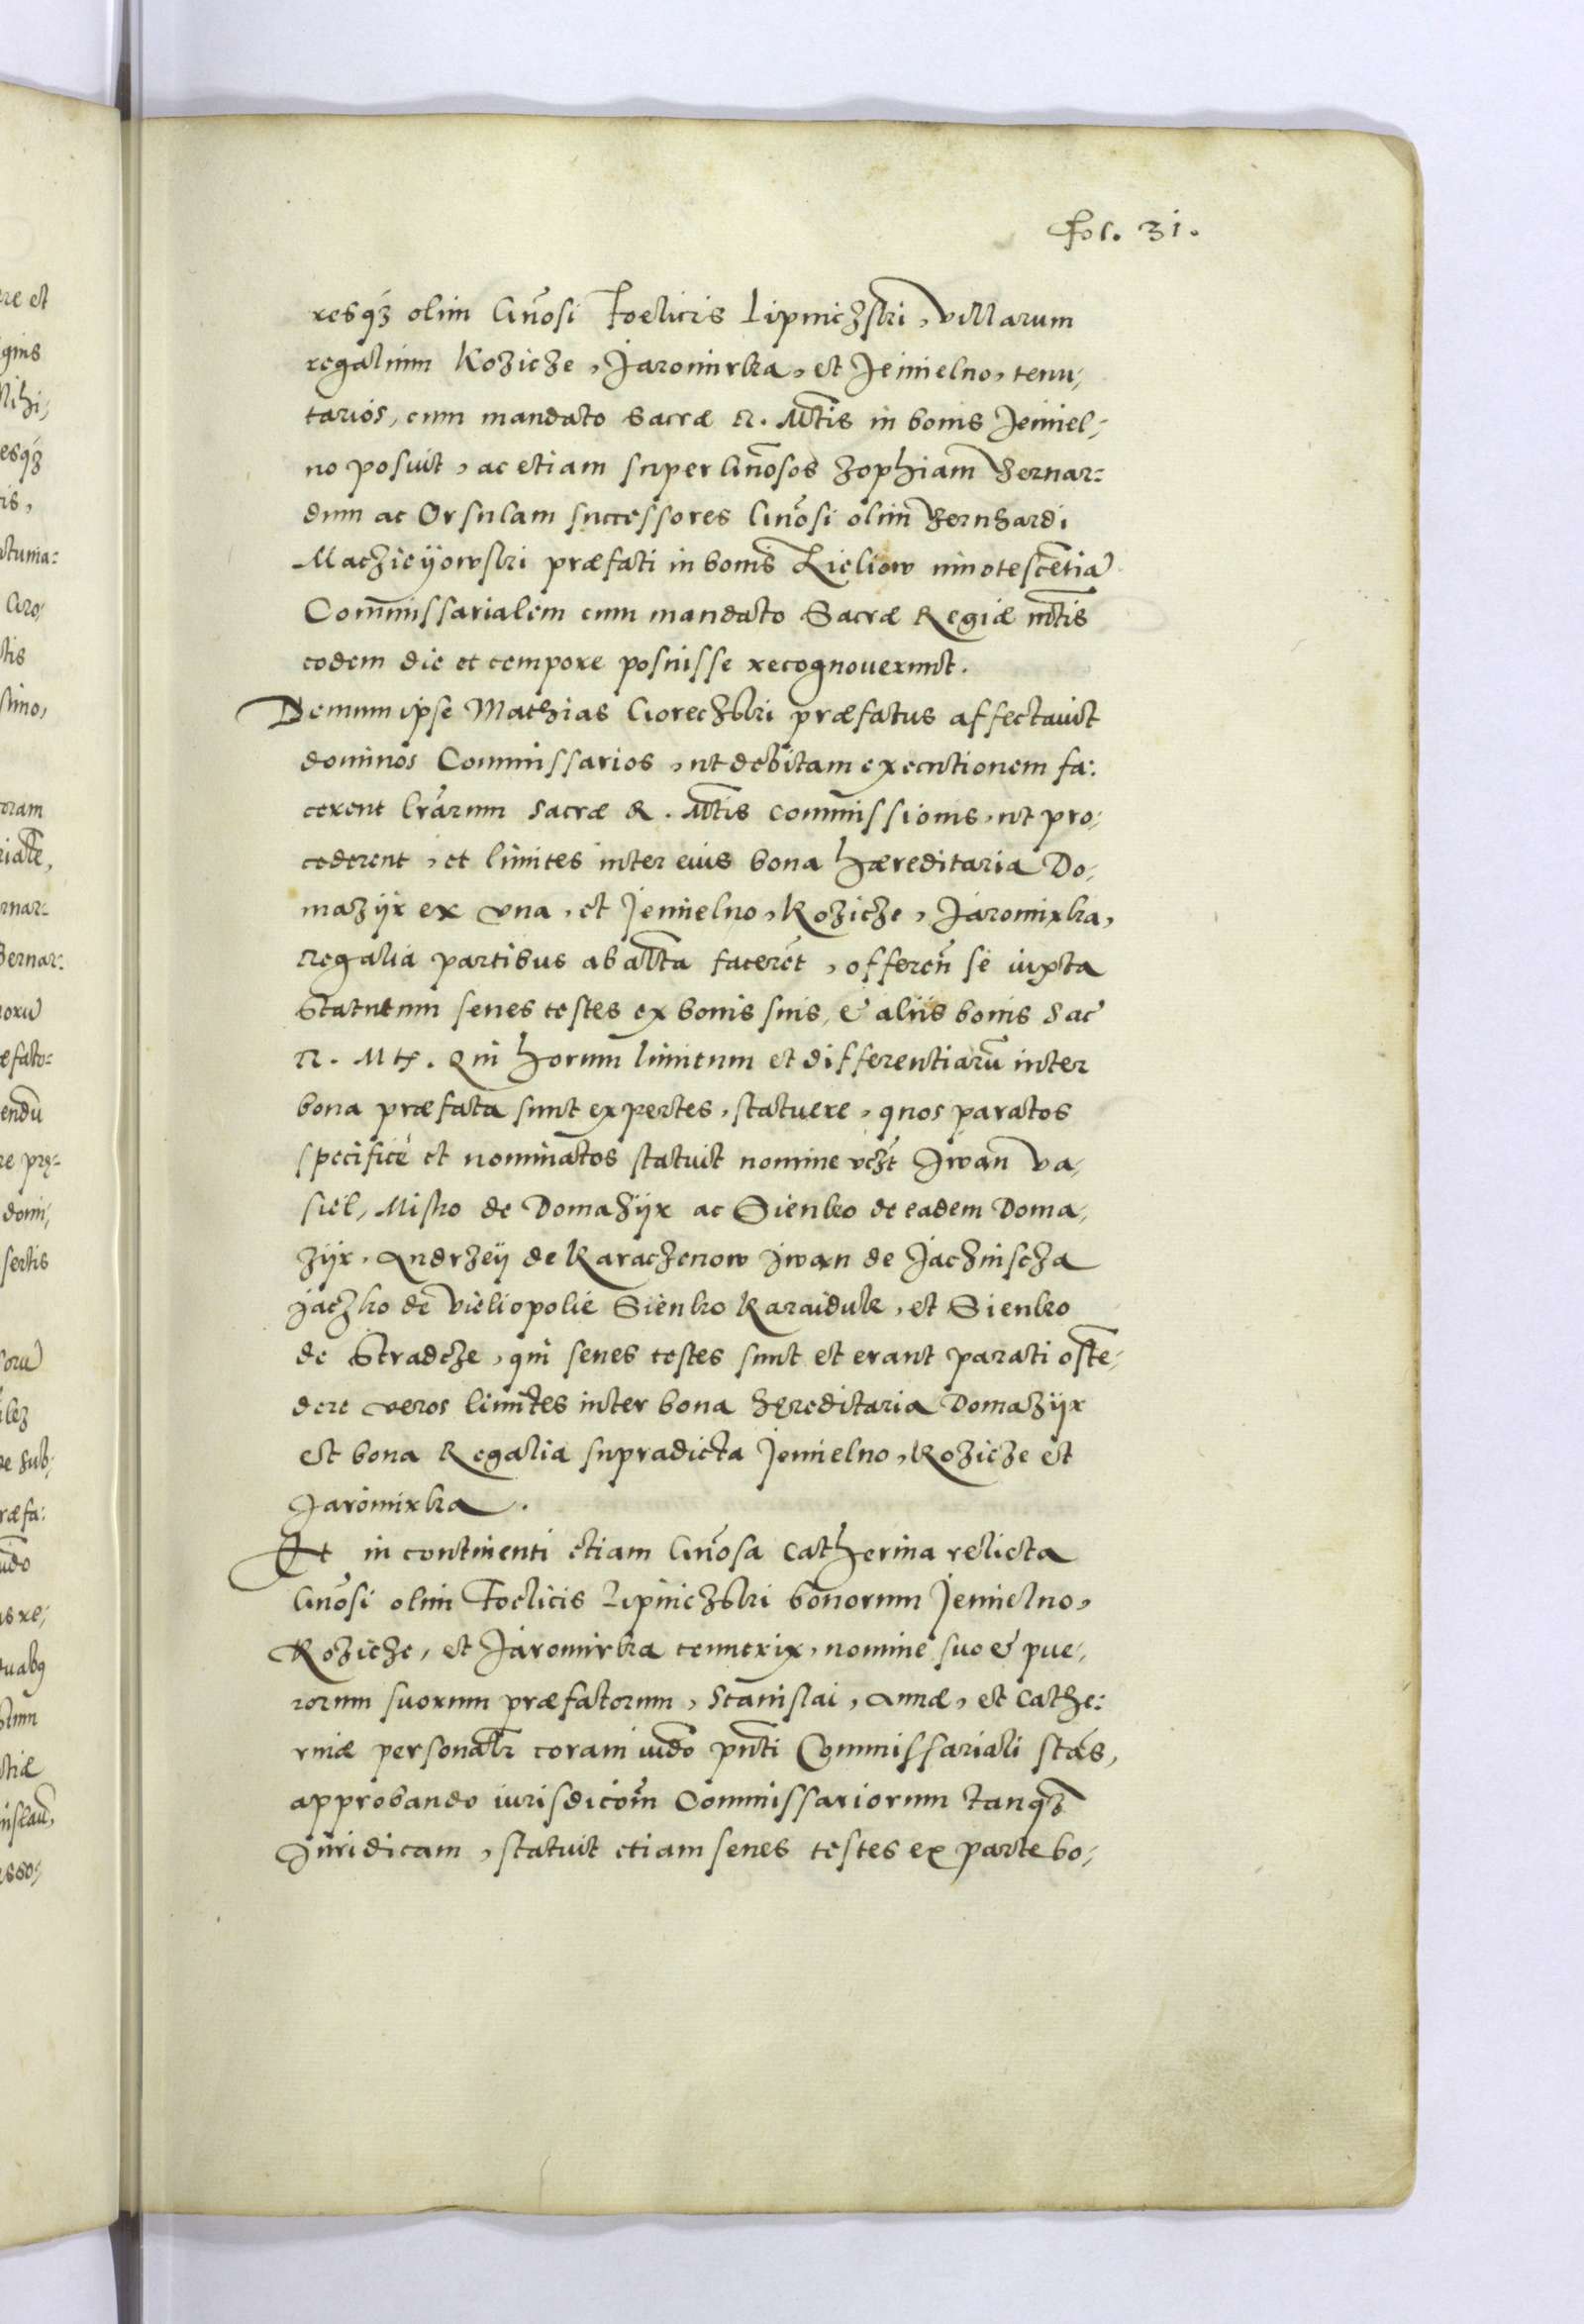 fol. 31.
resq₃ olim Gñosi Foelicis Lipniczski, villarum
regalium Kozicze, Jaromirka, et Jemielno, tenu-
tarios, cum mandato Sacræ R. Mtis in bonis Jemiel-
no posuit, ac etiam super Gñosos Zophiam Bernar-
dum ac Orsulam successores Gñosi olim Bernhardi
Maczieijowski præfati in bonis Lieliow innotescẽtiã
Com̃issarialem cum mandato Sacræ Regiæ Mtis
eodem die et tempore posuisse recognoverunt.
Demum ipse Mathias Goreczki præfatus affectavit
dominos Commissarios, ut debitam executionem fa-
cerent lrãrum Sacræ R. Mtis commissionis, ut pro-
cederent, et limites inter eius bona hæreditaria Do-
mazijr ex una, et Jemielno, Koziczе, Jaromirka,
Regalia partibus ab altã facerẽt, offereñ se iuxta
Statutum senes testes ex bonis suis, & aliis bonis Sac
R. Mtis. Qui horum limitum et differentiarũ inter
bona præfata sunt expertes, statuere, quos paratos
specificè et nominatos statuit nomine vczt Jwan Va-
siel, Misko de Domazijr ac Sienko de eadem Doma-
zijr, Andrzeij de Karaczenow Jwan de Jaczniscza
Jaczko de Vieliopolie Sienko Karaiduk, et Sienko
de Stradcze, qui senes testes sunt et erant parati ostẽ-
dere veros limites inter bona hęreditaria Domazijr
et bona Regalia supradicta Jemielno, Koziczе et
Jaromirka.
Et in continenti etiam Gñosa Catherina relicta
Gñosi olim Foelicis Lipniczki bonorum Jemielno,
Koziczе, et Jaromirka tenutrix, nomine suo & pue-
rorum suorum præfatorum, Stanislai, Annæ, et Cathe-
rinæ personalr coram iudo pñti Commissariali stãs,
approbando iurisdicõm Commissariorum tanq₃
Juridicam, statuit etiam senes testes ex parte bo-